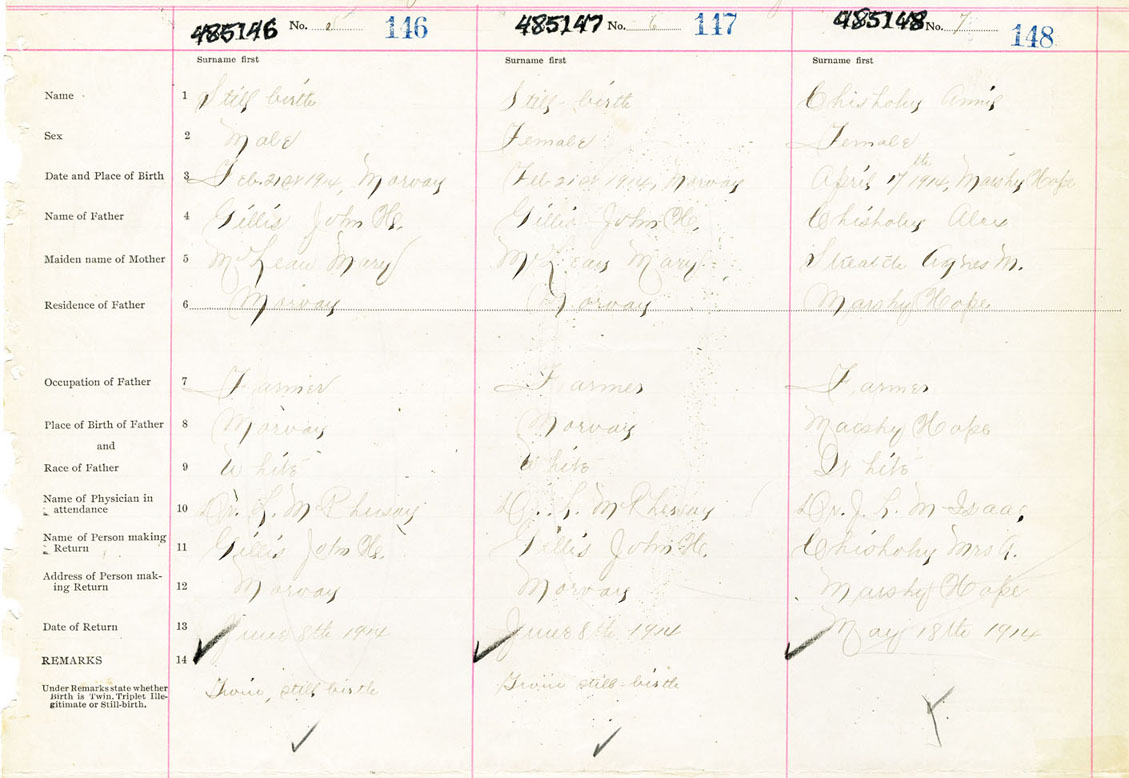 485146 No. 5 146 485147 No. 6 147 485148 No. 7 148
Surname first Surname first Surname first
Name 1 Still birth Still-birth Chisholm Annie
Sex 2 Male Female Female
Date and Place of Birth 3 Feb. 21st 1914, Morvan Feb 21st 1914, Morvan April 17th 1914, Marshy Hope
Name of Father 4 Gillis John H. Gillis John H. Chisholm Alex
Maiden name of Mother 5 McLean Mary McLean Mary Agnes M.
Residence of Father 6 Morvan Morvan Marshy Hope
Occupation of Father 7 Farmer Farmer Farmer
Place of Birth of Father 8 Morvan Morvan Marshy Hope
and
Race of Father 9 White White White
Name of Physician in
attendance 10 Dr. McPherson Dr. McPherson Dr. J. L. McIsaac
Name of Person making
Return 11 Gillis John H. Gillis John H. Chisholm Mrs A.
Address of Person mak-
ing Return 12 Morvan Morvan Marshy Hope
Date of Return 13 June 8th 1914 June 8th 1914 May 18th 1914
REMARKS 14
Under Remarks state whether
Birth is Twin, Triplet Ille-
gitimate or Still-birth.
Twin, still-birth Twin still-birth